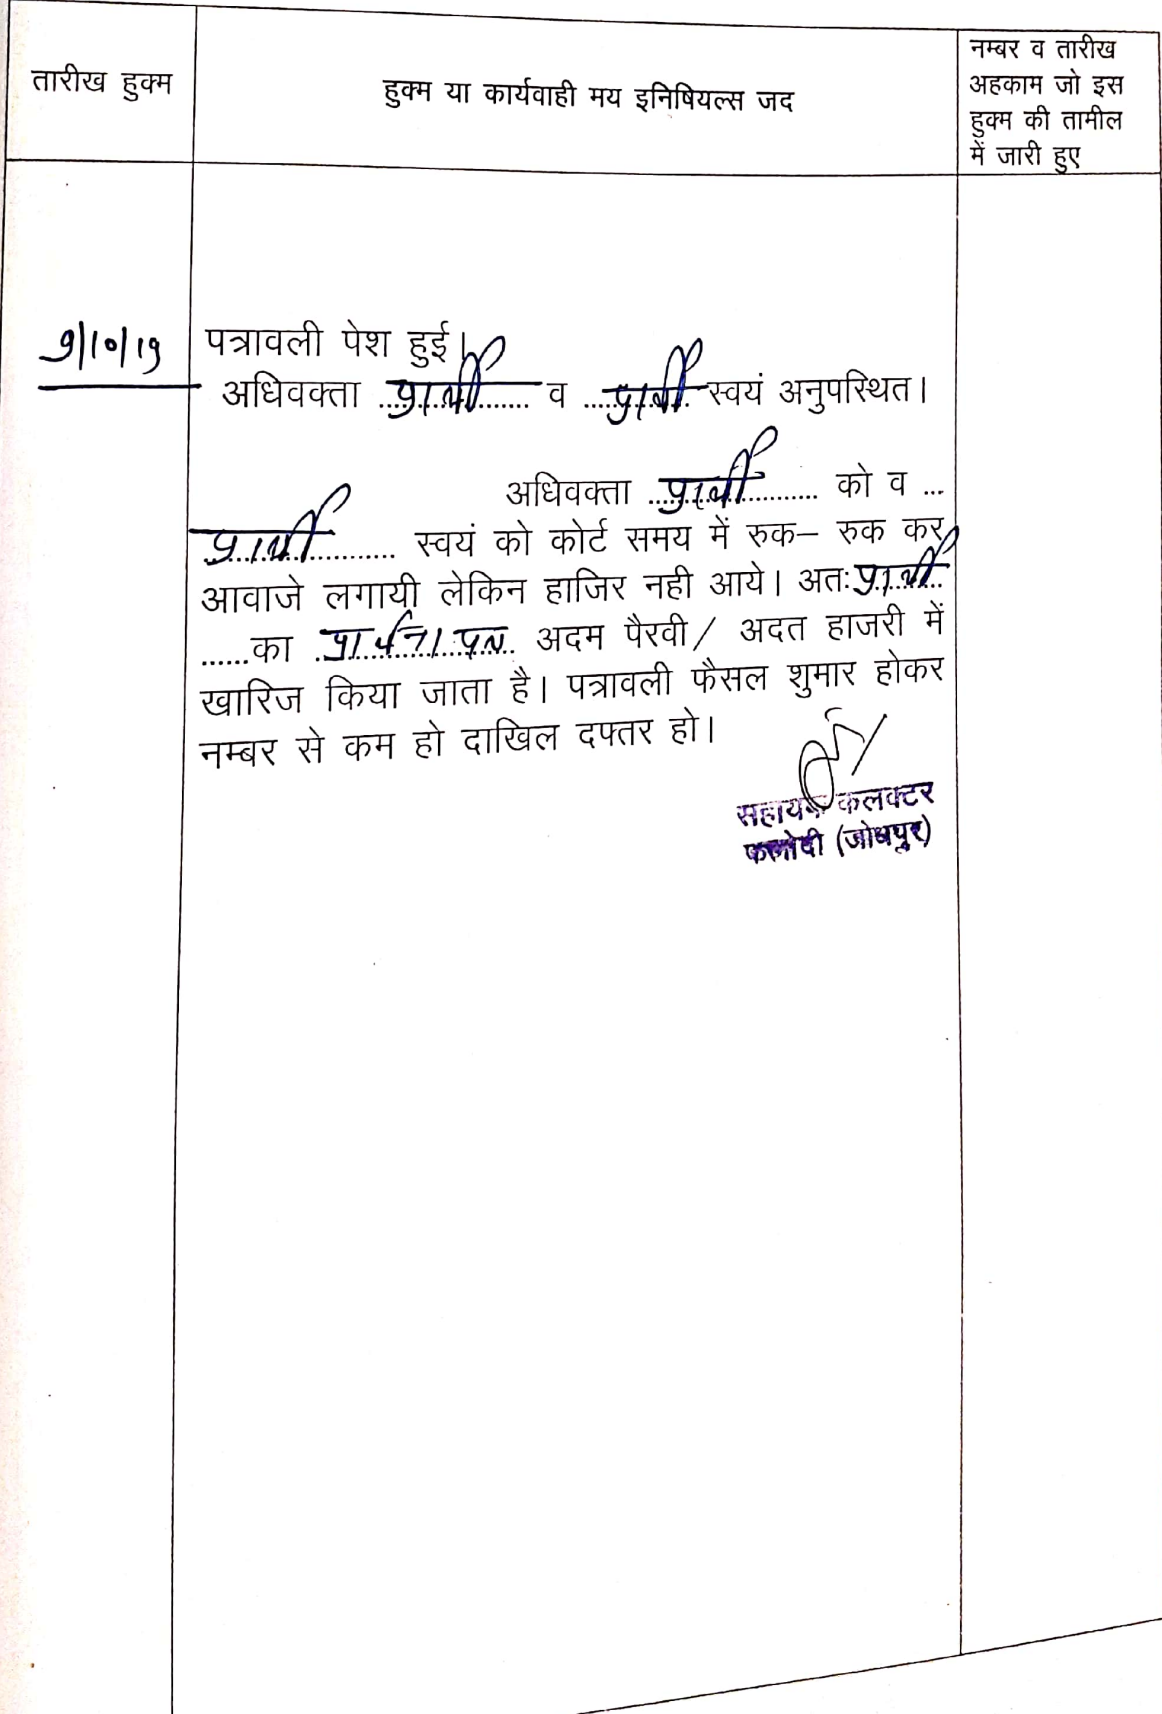 तारीख हुक्म
हुक्म या कार्यवाही मय इनिषियल्स जद
नम्बर व तारीख
अहकाम जो इस
हुक्म की तामील
में जारी हुए
9/10/19
पत्रावली पेश हुई।
अधिवक्ता ..प्रार्थी.. व ..प्रार्थी.. स्वयं अनुपस्थित।
अधिवक्ता ..प्रार्थी.. को व ...
प्रार्थी.. स्वयं को कोर्ट समय में रुक– रुक कर
आवाजे लगायी लेकिन हाजिर नही आये। अतः प्रार्थी
......का ..प्रार्थना पत्र.. अदम पैरवी/ अदत हाजरी में
खारिज किया जाता है। पत्रावली फैसल शुमार होकर
नम्बर से कम हो दाखिल दफ्तर हो।
सहायक कलक्टर
फलोदी (जोधपुर)